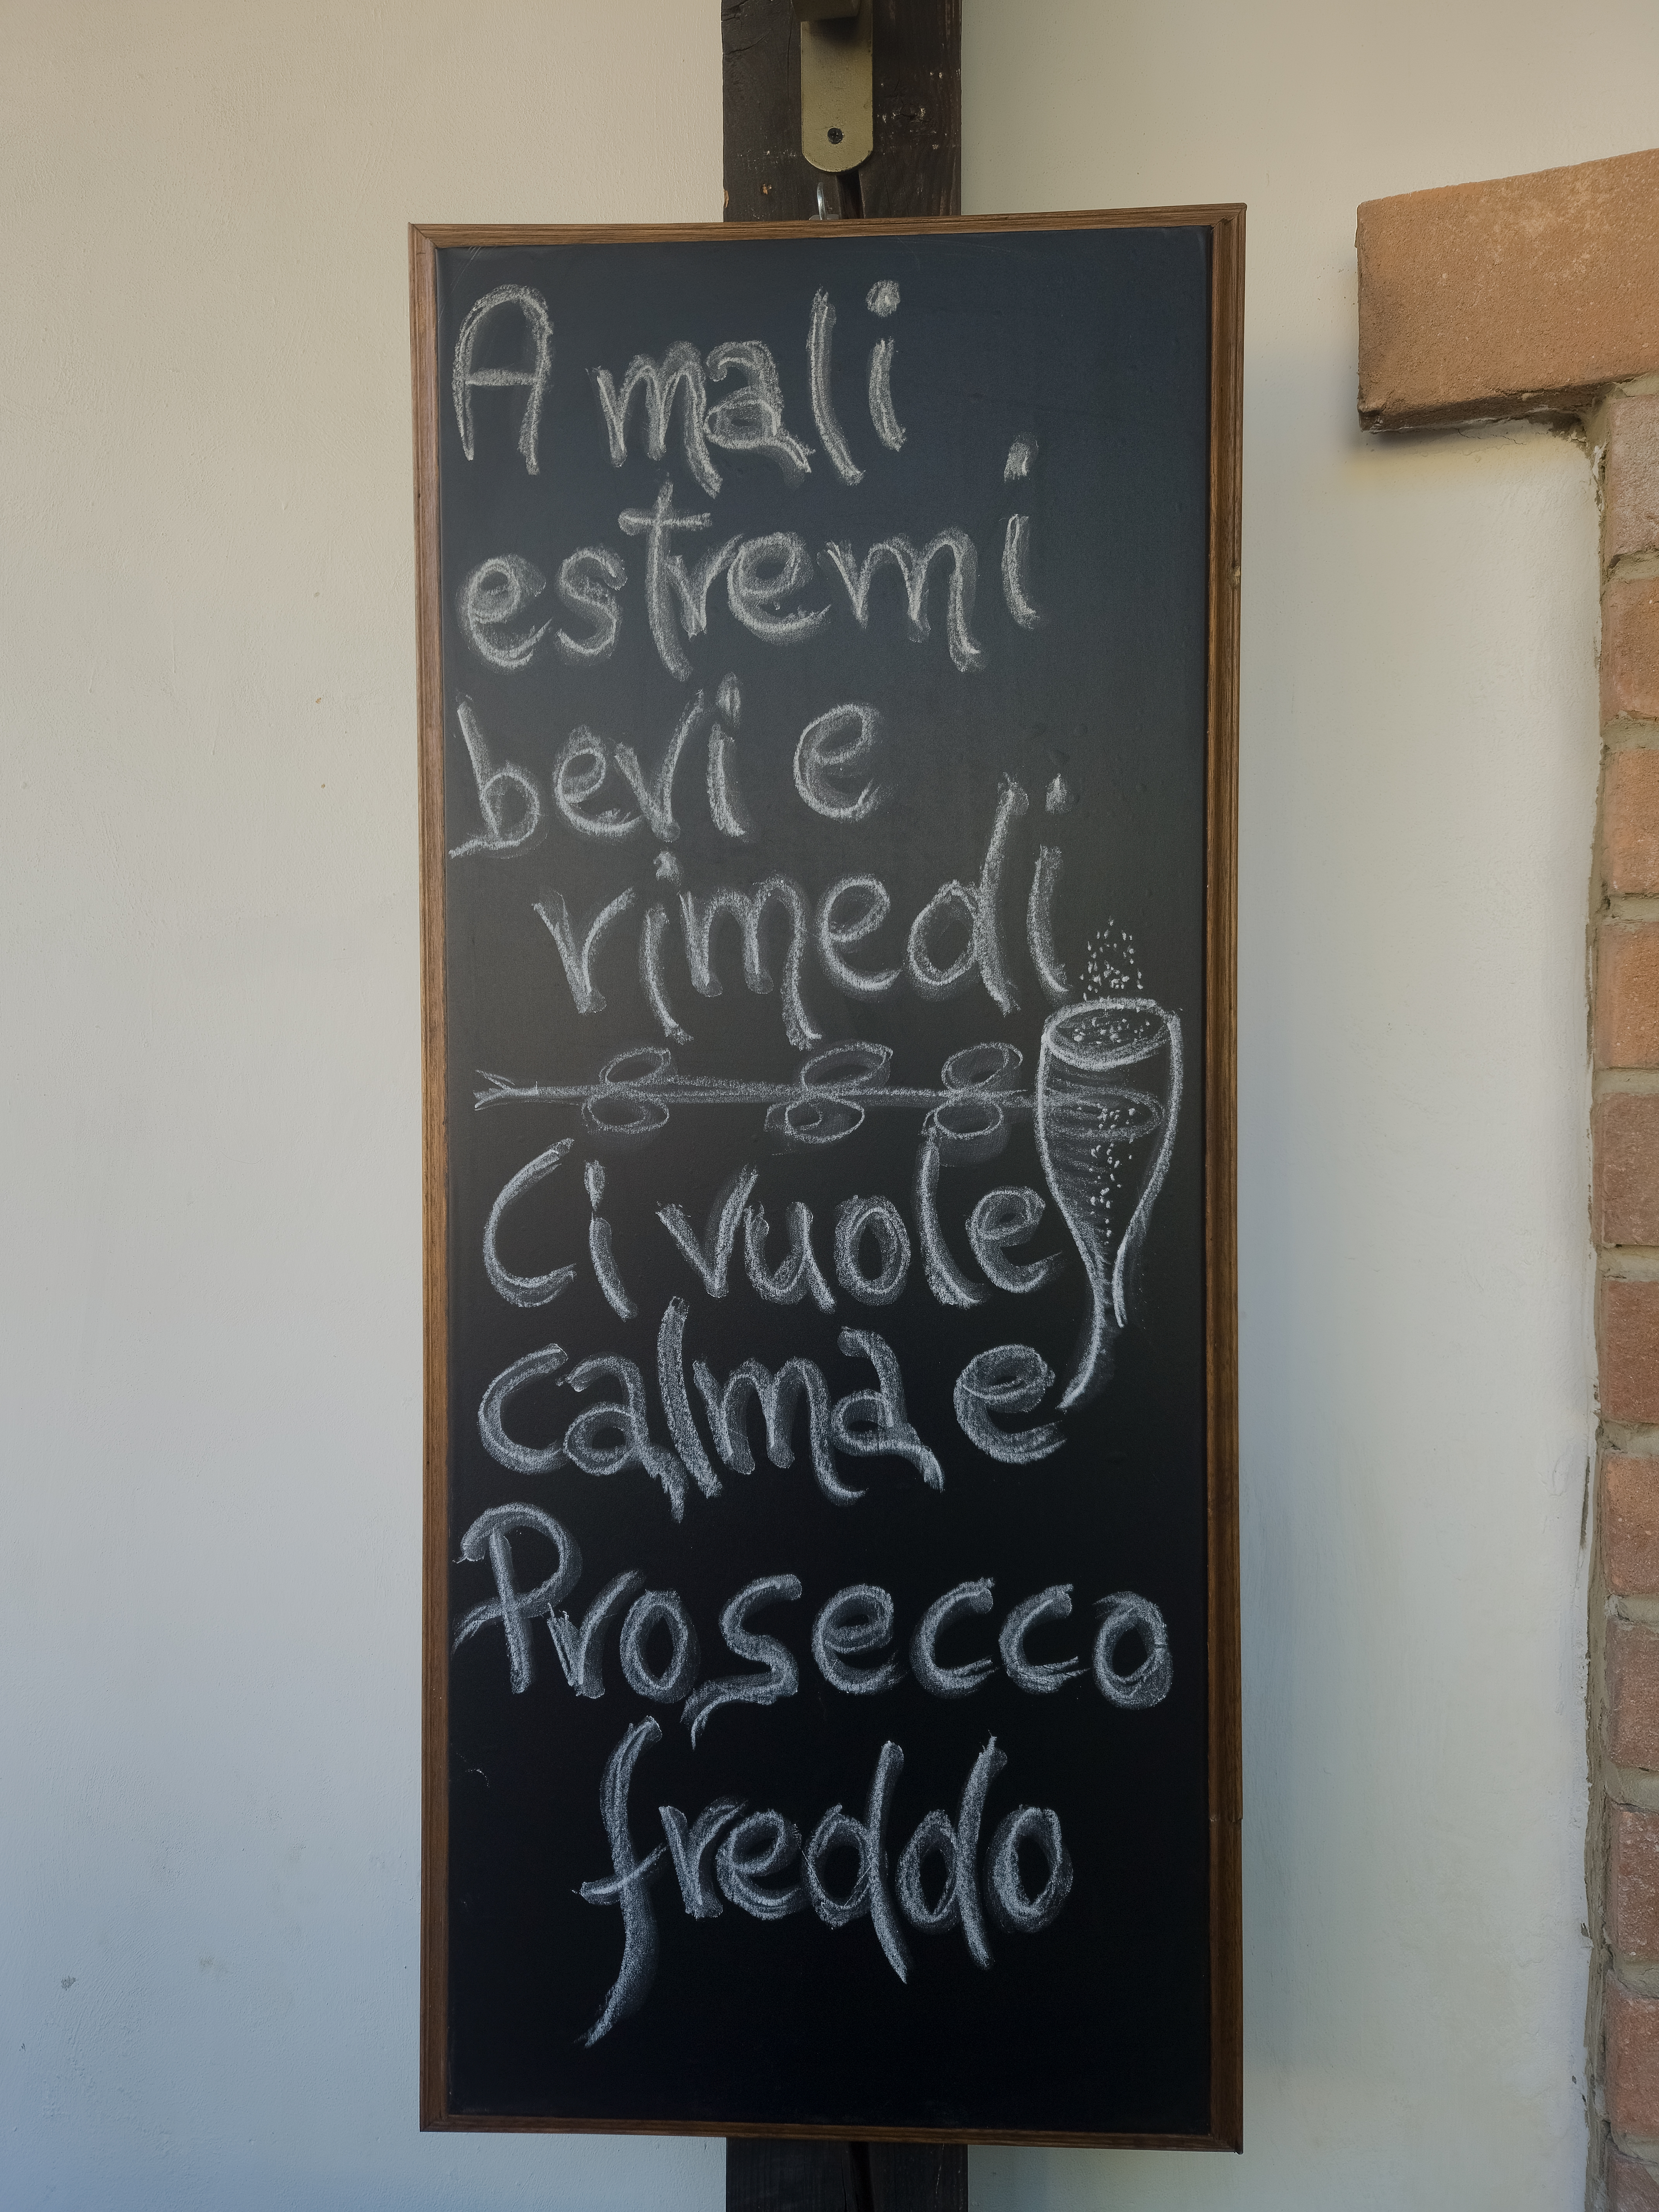 A mali
estremi
bevi e
rimedi
Ci vuole
calma e
Prosecco
freddo